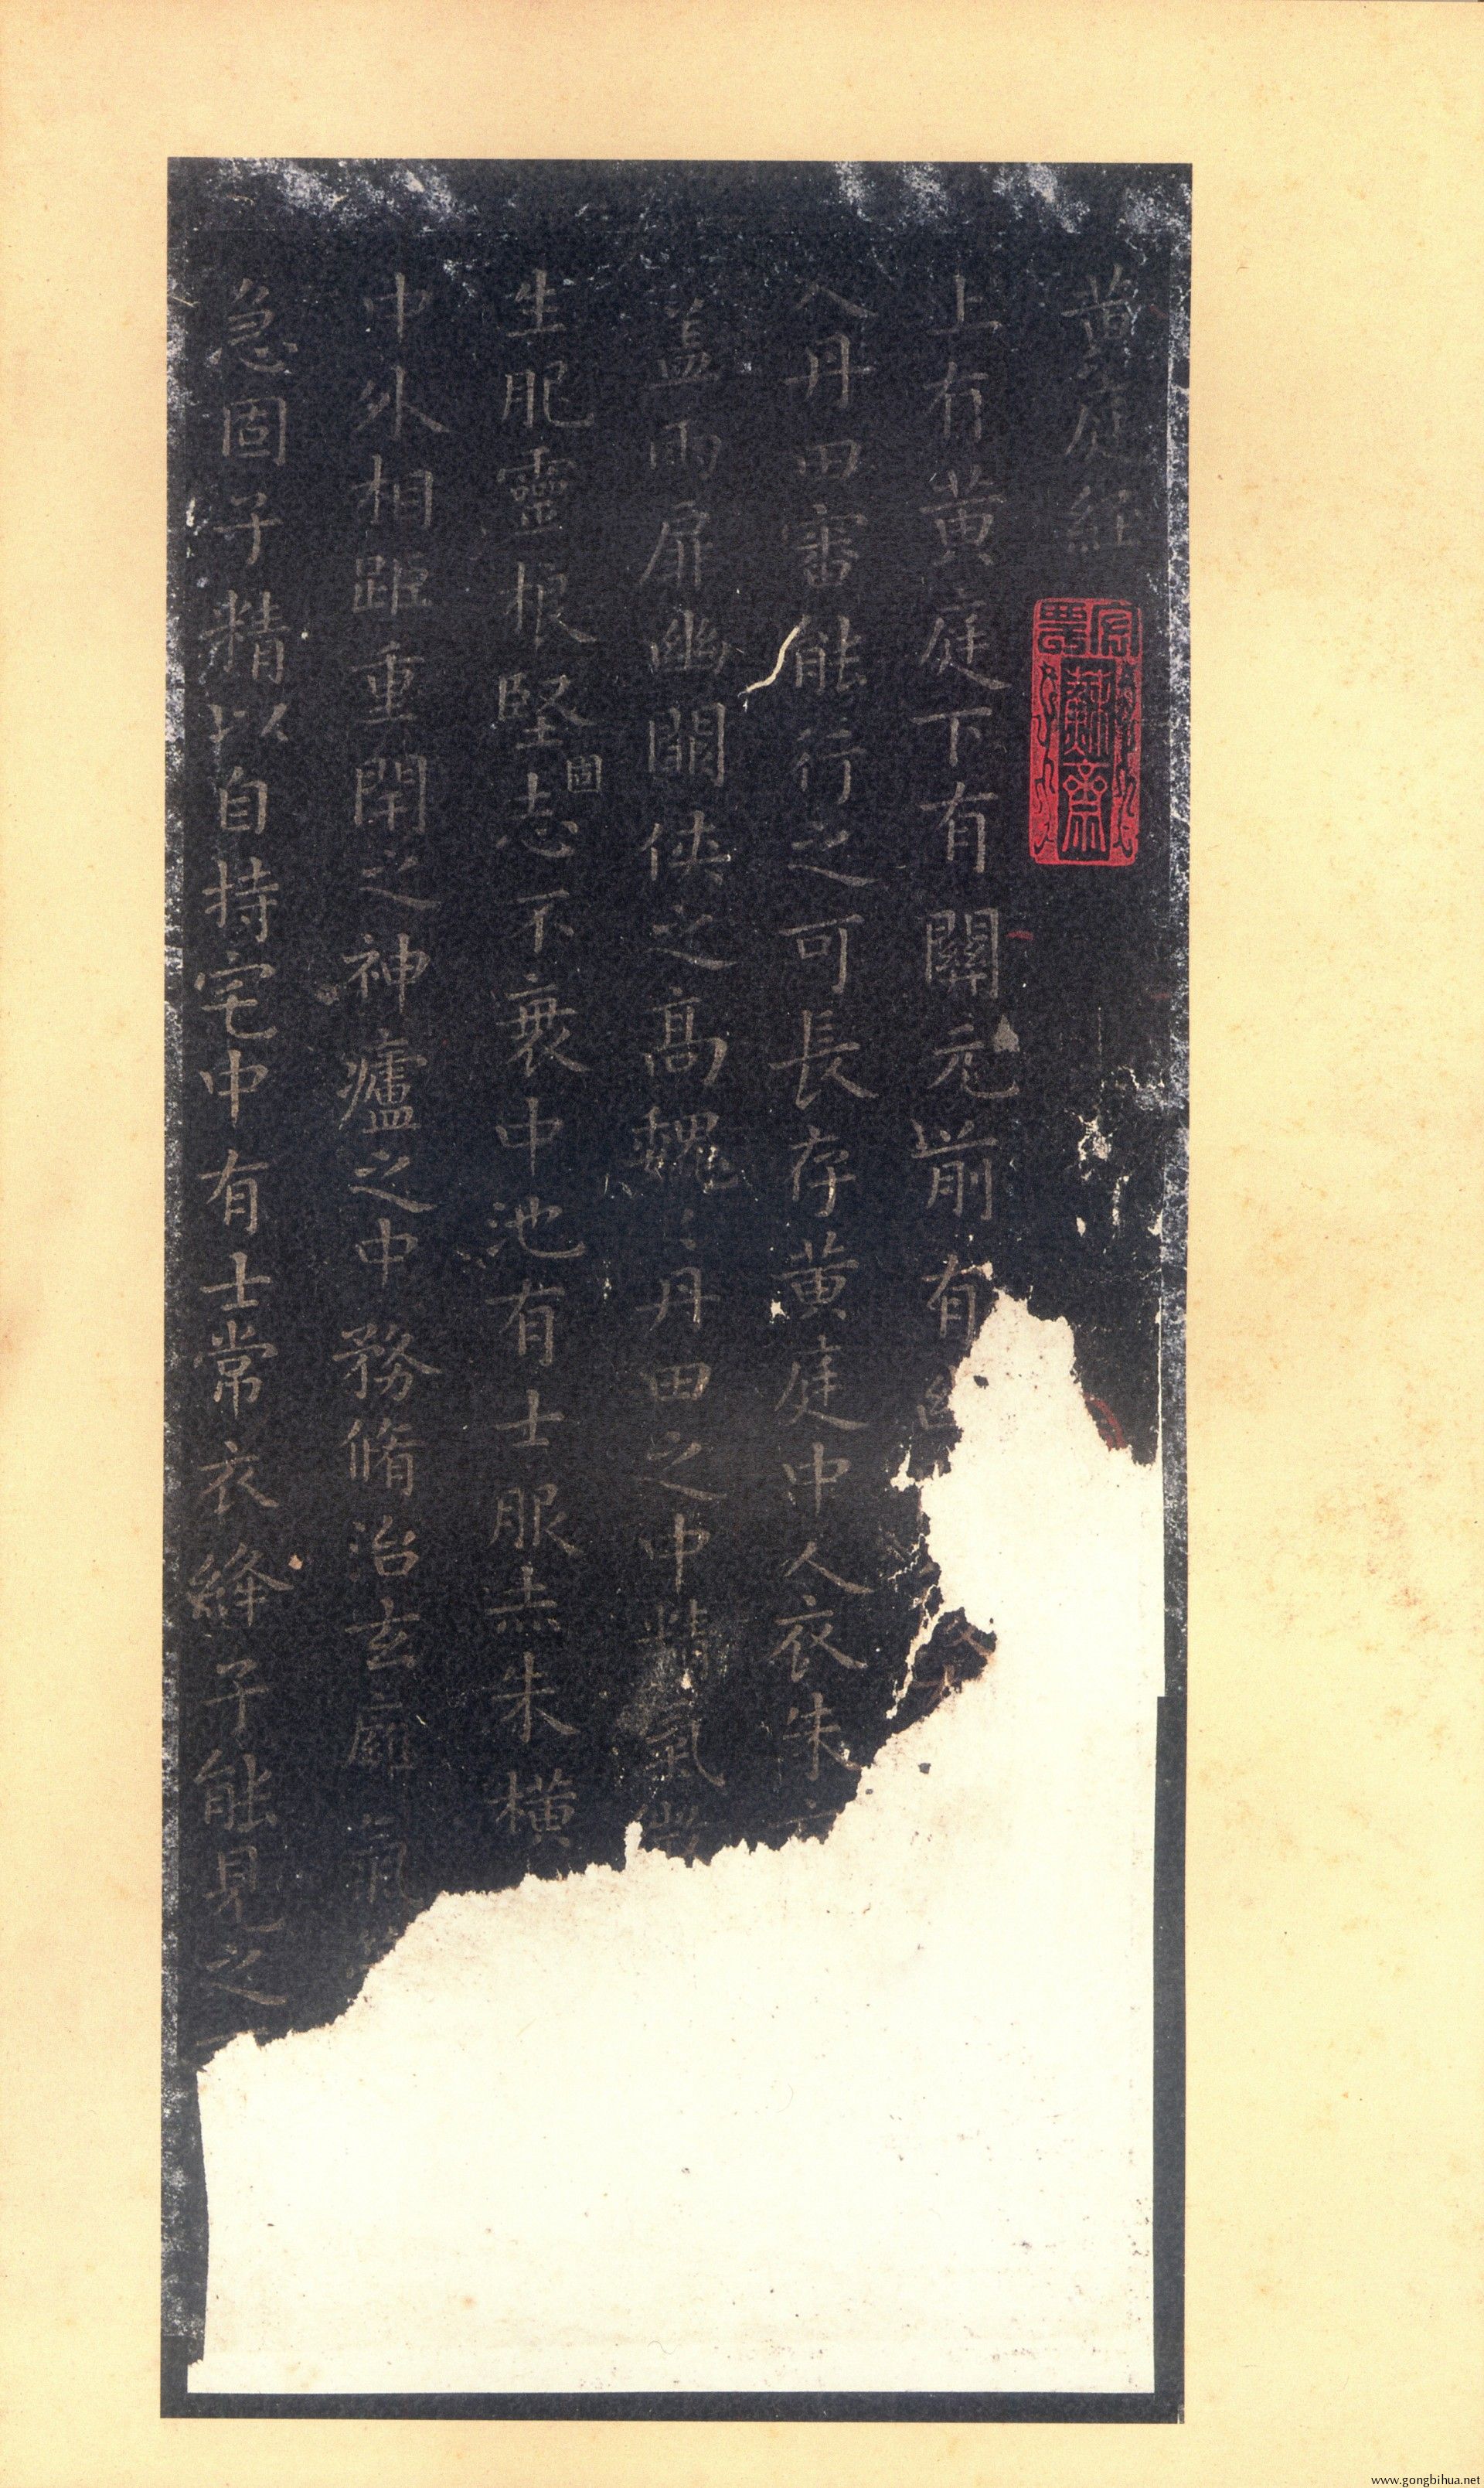 黃庭經
上有黃庭下有關元前有幽
入丹田審能行之可長存黃庭中人衣朱
蓋兩扉幽闕俠之高巍〻丹田之中精氣微
生肥靈根堅固志不衰中池有士服赤朱橫
中外相距重閉之神廬之中務脩治玄廱氣
急固子精以自持宅中有士常衣絳子能見之
www.gongbihua.net